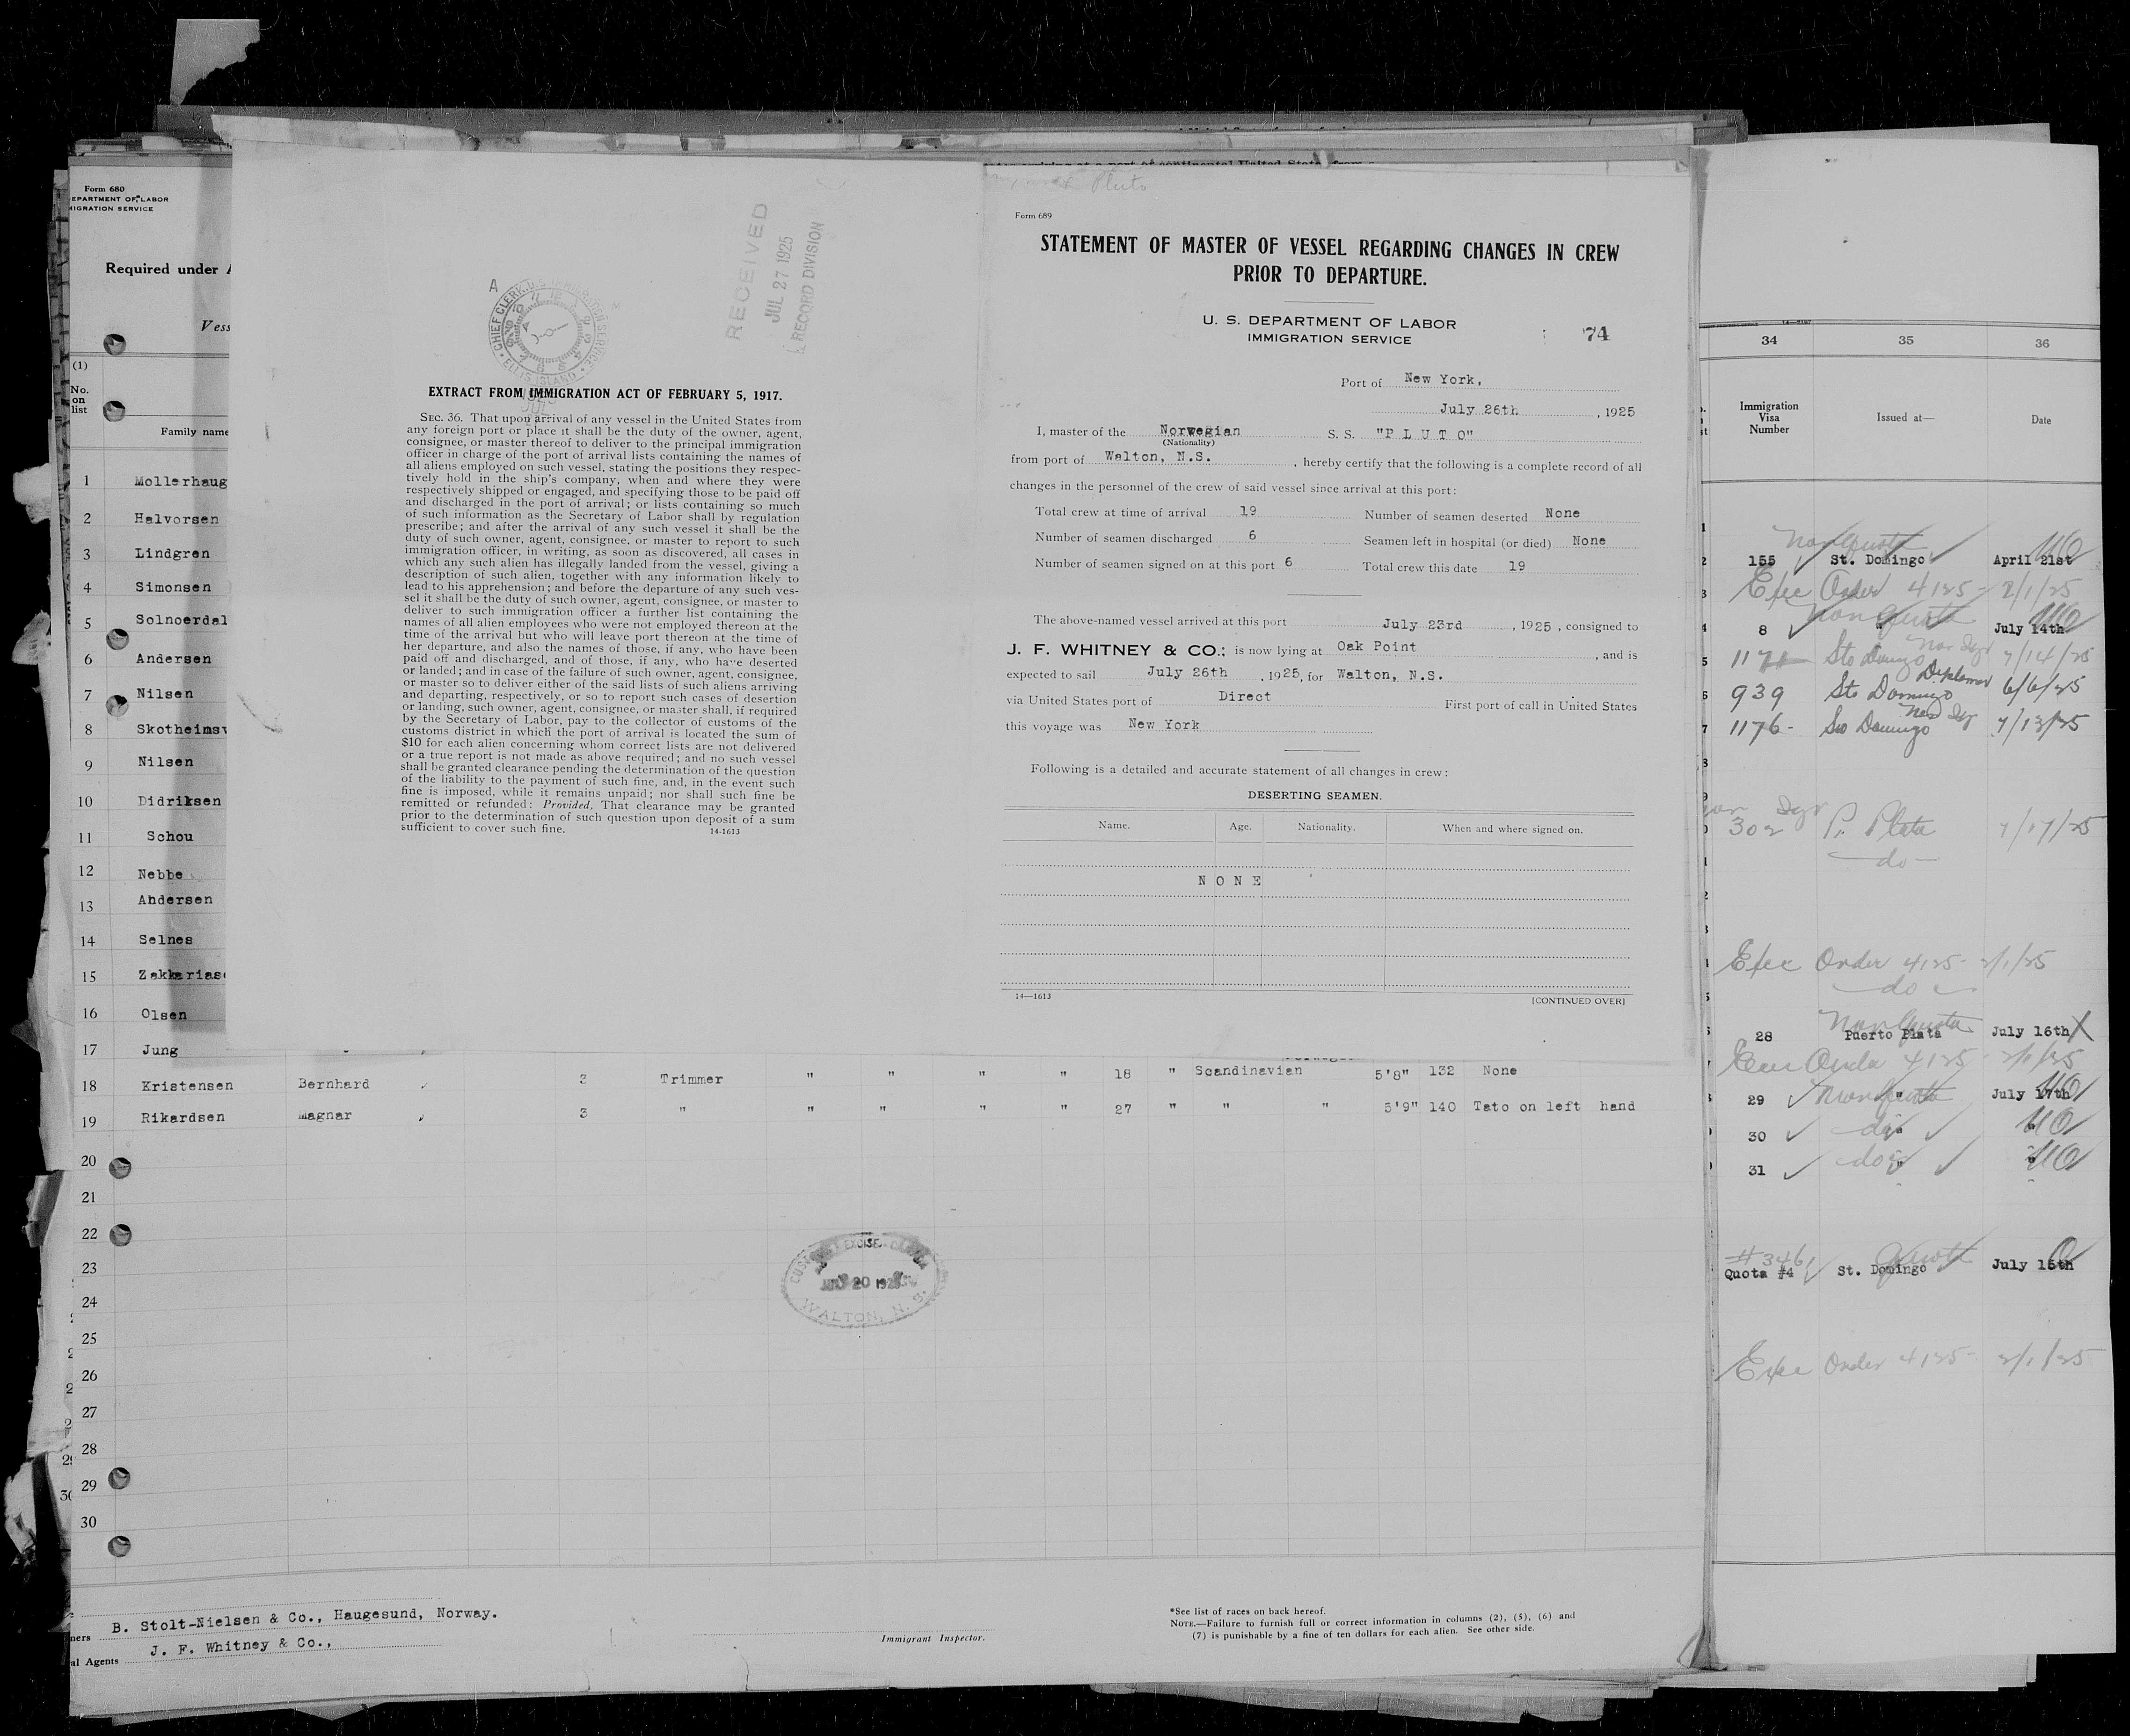 Form 680
EPARTMENT OF LABOR
MIGRATION SERVICE
Required under A
Vess
(1)
No.
on
list
Family name
1 Mollerhaug
2 Halvorsen
3 Lindgren
4 Simonsen
5 Solnoerdal
6 Andersen
7 Nilsen
8 Skotheimsv
9 Nilsen
10 Didriksen
11 Schou
12 Nebbe
13 Andersen
14 Selnes
15 Zakkariase
16 Olsen
17 Jung
18 Kristensen Bernhard 3 Trimmer " " " " 18 " Scandinavian 5'8" 132 None
19 Rikardsen Magnar 3 " " " " " 27 " " " 5'9" 140 Tato on left hand
20
21
22
23
24
25
26
27
28
29
30
WALTON, N. S.
B. Stolt-Nielsen & Co., Haugesund, Norway.
ners
J. F. Whitney & Co.,
al Agents
Immigrant Inspector.
*See list of races on back hereof.
NOTE.—Failure to furnish full or correct information in columns (2), (5), (6) and
(7) is punishable by a fine of ten dollars for each alien. See other side.
RECEIVED
JUL 27 1925
RECORD DIVISION
A
CHIEF CLERK, U.S. IMMIGRATION SERVICE
ELLIS ISLAND
EXTRACT FROM IMMIGRATION ACT OF FEBRUARY 5, 1917.
SEC. 36. That upon arrival of any vessel in the United States from
any foreign port or place it shall be the duty of the owner, agent,
consignee, or master thereof to deliver to the principal immigration
officer in charge of the port of arrival lists containing the names of
all aliens employed on such vessel, stating the positions they respec-
tively hold in the ship's company, when and where they were
respectively shipped or engaged, and specifying those to be paid off
and discharged in the port of arrival; or lists containing so much
of such information as the Secretary of Labor shall by regulation
prescribe; and after the arrival of any such vessel it shall be the
duty of such owner, agent, consignee, or master to report to such
immigration officer, in writing, as soon as discovered, all cases in
which any such alien has illegally landed from the vessel, giving a
description of such alien, together with any information likely to
lead to his apprehension; and before the departure of any such ves-
sel it shall be the duty of such owner, agent, consignee, or master to
deliver to such immigration officer a further list containing the
names of all alien employees who were not employed thereon at the
time of the arrival but who will leave port thereon at the time of
her departure, and also the names of those, if any, who have been
paid off and discharged, and of those, if any, who have deserted
or landed; and in case of the failure of such owner, agent, consignee,
or master so to deliver either of the said lists of such aliens arriving
and departing, respectively, or so to report such cases of desertion
or landing, such owner, agent, consignee, or master shall, if required
by the Secretary of Labor, pay to the collector of customs of the
customs district in which the port of arrival is located the sum of
$10 for each alien concerning whom correct lists are not delivered
or a true report is not made as above required; and no such vessel
shall be granted clearance pending the determination of the question
of the liability to the payment of such fine, and, in the event such
fine is imposed, while it remains unpaid; nor shall such fine be
remitted or refunded: Provided, That clearance may be granted
prior to the determination of such question upon deposit of a sum
sufficient to cover such fine.
14-1613
Pluto
Form 689
STATEMENT OF MASTER OF VESSEL REGARDING CHANGES IN CREW
PRIOR TO DEPARTURE.
U. S. DEPARTMENT OF LABOR
IMMIGRATION SERVICE
74
Port of New York,
July 26th, 1925
I, master of the Norwegian S. S. "P L U T O"
(Nationality)
from port of Walton, N.S., hereby certify that the following is a complete record of all
changes in the personnel of the crew of said vessel since arrival at this port:
Total crew at time of arrival 19 Number of seamen deserted None
Number of seamen discharged 6 Seamen left in hospital (or died) None
Number of seamen signed on at this port 6 Total crew this date 19
The above-named vessel arrived at this port July 23rd, 1925, consigned to
J. F. WHITNEY & CO.; is now lying at Oak Point, and is
expected to sail July 26th, 1925, for Walton, N.S.
via United States port of Direct First port of call in United States
this voyage was New York
Following is a detailed and accurate statement of all changes in crew:
DESERTING SEAMEN.
Name. Age. Nationality. When and where signed on.
N O N E
14—1613 [CONTINUED OVER]
34 35 36
Immigration
Visa
Number
Issued at—
Date
Non Quota
155 St. Domingo April 21st
Exec Order 4125 - 2/1/25
Non Quota
8 " July 14th
1171 Sto Domingo 7/14/25
Diplomar
939 Sto Domingo 6/6/25
1176- Sto Domingo 7/13/25
302 P. Plata 7/17/25
do
Exec Order 4125- 2/1/25
do
Non Quota
28 Puerto Plata July 16th X
Exec Order 4125 2/1/25
29 Non Quota July 17th
30 do
31 do
#346
Quota #4 St. Domingo Quota July 15th
Exec Order 4125- 2/1/25